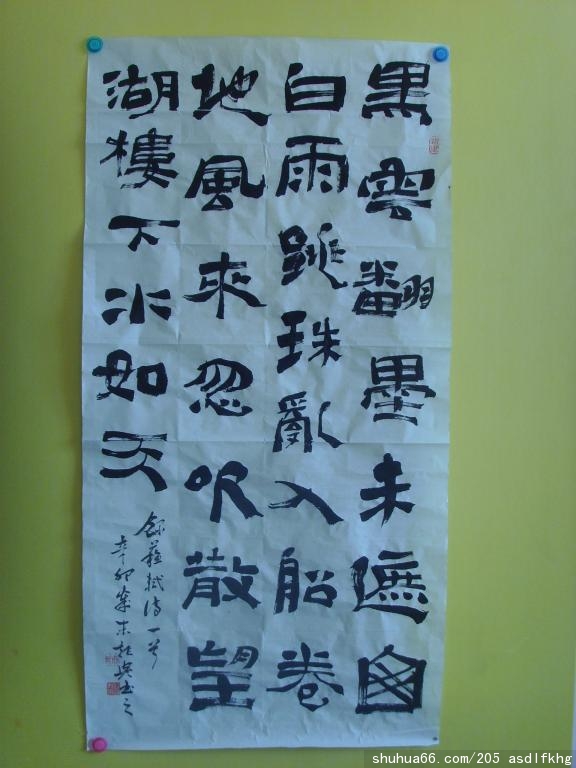 黑雲翻墨未遮
白雨跳珠亂入船卷
地風來忽吹散望
湖樓下水如天
錄蘇軾詩一首
辛卯歲末書之
shuhua66.com/205 asdlfkhg